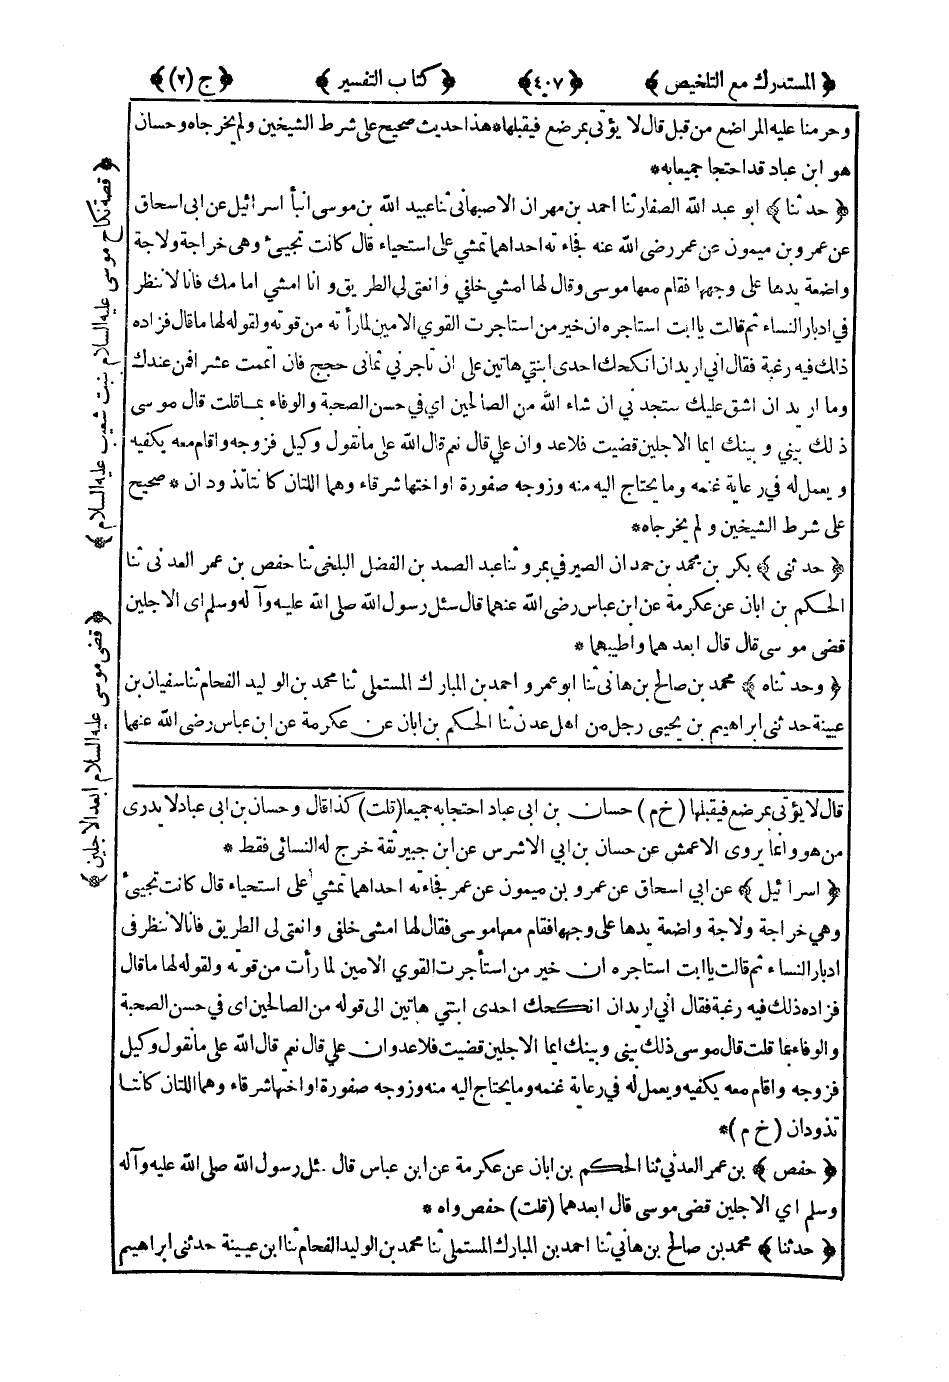 ﴿ المستدرك مع التلخيص ﴾ ﴿ ٤٠٧ ﴾ ﴿ كتاب التفسير ﴾ ﴿ ج (٢) ﴾
وحرمنا عليه المراضع من قبل قال لا يؤتى بمرضع فيقبلها * هذا حديث صحيح على شرط الشيخين ولم يخرجاه وحسان
هو ابن عباد قد احتجا جميعا به *
﴿ حدثنا ﴾ ابو عبد الله الصفار ثنا احمد بن مهران الاصبهانى ثنا عبيد الله بن موسى انبأ اسرائيل عن ابى اسحاق
عن عمرو بن ميمون عن عمر رضى الله عنه فجاءته احداهما تمشي على استحياء قال كانت تجيئ وهى خراجة ولاجة
واضعة يدها على وجهها فقام معها موسى وقال لها امشي خلفي وانعتى لي الطريق و انا امشي امامك فانا لا ننظر
في ادبار النساء ثم قالت يا ابت استاجره ان خير من استاجرت القوي الامين لما رأته من قوته ولقوله لها ما قال فزاده
ذلك فيه رغبة فقال اني اريد ان انكحك احدى ابنتي هاتين على ان تأجرني ثمانى حجج فان اتممت عشرا فمن عندك
وما اريد ان اشق عليك ستجدني ان شاء الله من الصالحين اي في حسن الصحبة والوفاء بما قلت قال موسى
ذلك بيني وبينك ايما الاجلين قضيت فلا عدوان علي قال نعم قال الله على ما نقول وكيل فزوجه واقام معه يكفيه
ويعمل له في رعاية غنمه وما يحتاج اليه منه وزوجه صفورة او اختها شرقاء وهما اللتان كانتا تذودان * صحيح
على شرط الشيخين ولم يخرجاه *
﴿ حدثنى ﴾ بكر بن محمد بن حمدان الصيرفي بمرو ثنا عبد الصمد بن الفضل البلخى ثنا حفص بن عمر العدنى ثنا
الحكم بن ابان عن عكرمة عن ابن عباس رضى الله عنهما قال سئل رسول الله صلى الله عليه وآله وسلم اى الاجلين
قضى موسى قال قال ابعدهما واطيبهما *
﴿ وحدثناه ﴾ محمد بن صالح بن هانى ثنا ابو عمرو احمد بن المبارك المستملى ثنا محمد بن الوليد الفحام ثنا سفيان بن
عيينة حدثنى ابراهيم بن يحيى رجل من اهل عدن ثنا الحكم بن ابان عن عكرمة عن ابن عباس رضى الله عنهما
قال لا يؤتى بمرضع فيقبلها (خ م) حسان بن ابى عباد احتجا به جميعا (قلت) كذا قال وحسان بن ابى عباد لا يدرى
من هو وانما يروى الاعمش عن حسان بن ابي الاشرس عن ابن جبير ثقة خرج له النسائى فقط *
﴿ اسرائيل ﴾ عن ابي اسحاق عن عمرو بن ميمون عن عمر فجاءته احداهما تمشي على استحياء قال كانت تجيئ
وهي خراجة ولاجة واضعة يدها على وجهها فقام معها موسى فقال لها امشى خلفى وانعتى لى الطريق فانا لا ننظر فى
ادبار النساء ثم قالت يا ابت استاجره ان خير من استأجرت القوي الامين لما رأت من قوته ولقوله لها ما قال
فزاده ذلك فيه رغبة فقال اني اريد ان انكحك احدى ابنتي هاتين الى قوله من الصالحين اى في حسن الصحبة
والوفاء بما قلت قال موسى ذلك بيني وبينك ايما الاجلين قضيت فلا عدوان علي قال نعم قال الله على ما نقول وكيل
فزوجه واقام معه يكفيه ويعمل له في رعاية غنمه وما يحتاج اليه منه وزوجه صفورة او اختها شرقاء وهما اللتان كانتا
تذودان (خ م) *
﴿ حفص ﴾ بن عمر العدني ثنا الحكم بن ابان عن عكرمة عن ابن عباس قال سئل رسول الله صلى الله عليه وآله
وسلم اي الاجلين قضى موسى قال ابعدهما (قلت) حفص واه *
﴿ حدثنا ﴾ محمد بن صالح بن هاني ثنا احمد بن المبارك المستملى ثنا محمد بن الوليد الفحام ثنا ابن عيينة حدثنى ابراهيم
﴿ قصة نكاح موسى عليه السلام بنت شعيب عليه السلام ﴾
﴿ قضى موسى عليه السلام ابعد الاجلين ﴾